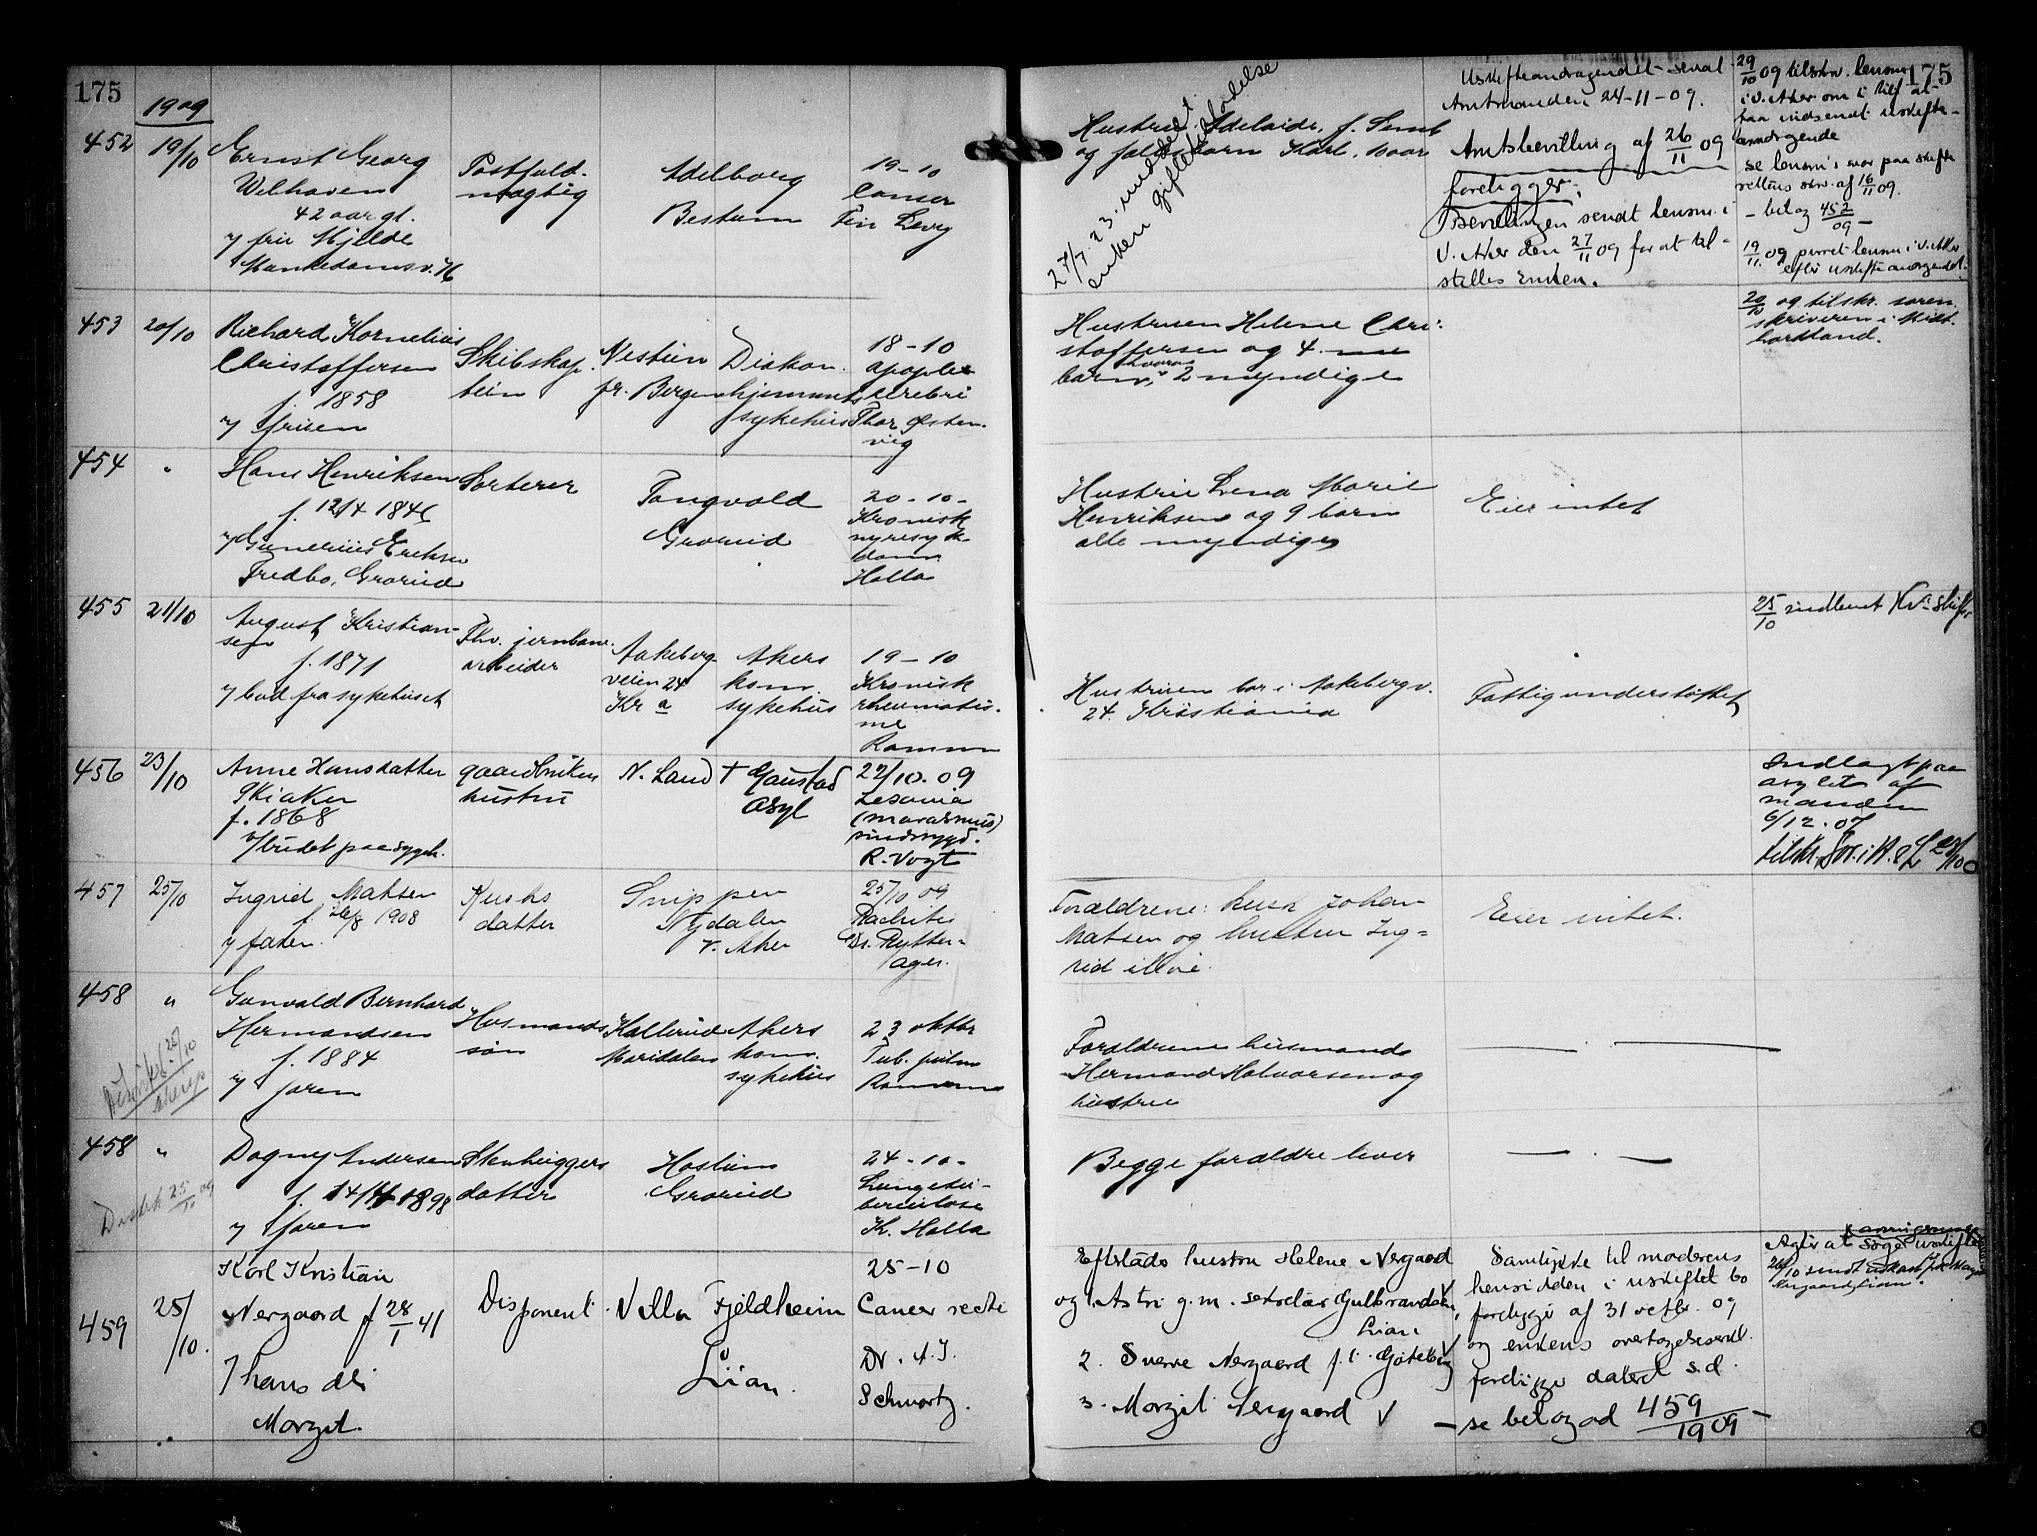 175
175
1909
452
19/10
Ernst Georg
Welhaven
42 aar gl.
v/ fru Mjelde
Munkedamsv. 76
Postfuld-
mægtig
Adelborg
Bestum
19-10
Cancer
Fin Levy
Hustru Adelaide, f.
og fælles barn Karl,
27/7 23. meddelt
enken gifteattest
Uskifteandragendet sendt
Amtmanden 24-11-09.
Amtsbevilling af 26/11 09
foreligger.
Bevillingen sendt lensm. i
V. Aker den 27/11 09 for at til-
stilles Enken.
29/10 09 tilskr. lensm.
i V. Aker om i tilf. at
faa indsendt uskifte-
andragende
se lensm's svar paa skifte
rettens skr. af 16/11 09.
- bel og 452/09 -
19/11 09 purret lensm i V. Aker
efter uskifteandragendet.
453
20/10
Richard Kornelius
Christoffersen
f. 1858
v/ fruen
Skibskap-
tein
Nestun
pr. Bergen
Diakon-
hjemmets
sykehus
18-10
apoplex
cerebri
Thor Østen-
vig
Hustruen Helene Chri-
stoffersen og 4
barn, hvorav 2 myndige
29/10 09 tilskr. soren-
skriveren i Midt-
hordland.
454
"
Hans Henriksen
f. 12/4 1846
v/ Gunerius Eriksen
Fredbo, Grorud
Sorterer
Tangvald
Grorud
20-10-
Kronisk
nyresyk-
dom
Holla
Hustru Lena Marie
Henriksen og 9 barn
alle myndige
Eier intet
455
21/10
August Kristian-
sen
f. 1871
v/ bud fra sykehuset
Fhv. jernbane-
arbeider
Aakeberg-
veien 24
Kr a
Akers
kom.
sykehus
19-10
Kronisk
rheumatis-
me
Ramm
Hustruen bor i Aakebergv.
24. Kristiania
Fattigunderstøttet
25/10 indberet Kr.a Skifter
456
23/10
Anne Hansdatter
Skiaker
f. 1868
v/ budet paa sygeh.
gaardbruker
hustru
N. Land
+ Gaustad
Asyl
22/10.09
(marasmus)
sindssygd.
R. Vogt
Indlagt paa
asylet af
manden
6/12.07
tilskr. Sor. i H. & L
457
25/10
Ingrid Matsen
f. 26/8 1908
v/ faren.
Kusks
datter
Snippen
Nydalen
V. Aker
25/10 09
Rachitis
Dr. Rytter-
ager.
Forældrene: kusk Johan
Matsen og hustru Ing-
rid
Eier intet.
458
"
Gunvald Bernhard
Hermandsen
f. 1884
v/ faren
Husmands
søn
Kallerud
Maridalen
Akers
kom.
sykehus
23 oktbr
Tub. pulm
Ramm
Forældrene husmand
Hermand Halvorsen og
hustru
— . —
458
"
Dagny Andersen
f. 14/4 1898
v/ faren
Stenhuggers
datter
Haslum
Grorud
24-10-
Lungetu-
berculose
K. Holla
Begge forældre lever
— . —
459
25/10.
Karl Kristian
Nergaard f 28/1 41
v/ hans dtr
Margit.
Disponent
Villa Fjeldheim
Lian.
25-10
Cancer recti
Dr. A. J.
Schwartz.
Efterlads hustru Helene Nergaard
og 1. Astri g.m. sekretær Gulbrandsen,
Lian
2. Sverre Nergaard f.t. Gøteborg
3. Margit Nergaard V
Samtykke til moderens
hensidden i uskiftet bo
foreligger af 31 octbr. 09
og enkens overtagelseserkl.
foreligger dateret s.d.
- se bel og ad 459/1909 -
Agter at søge uskifte